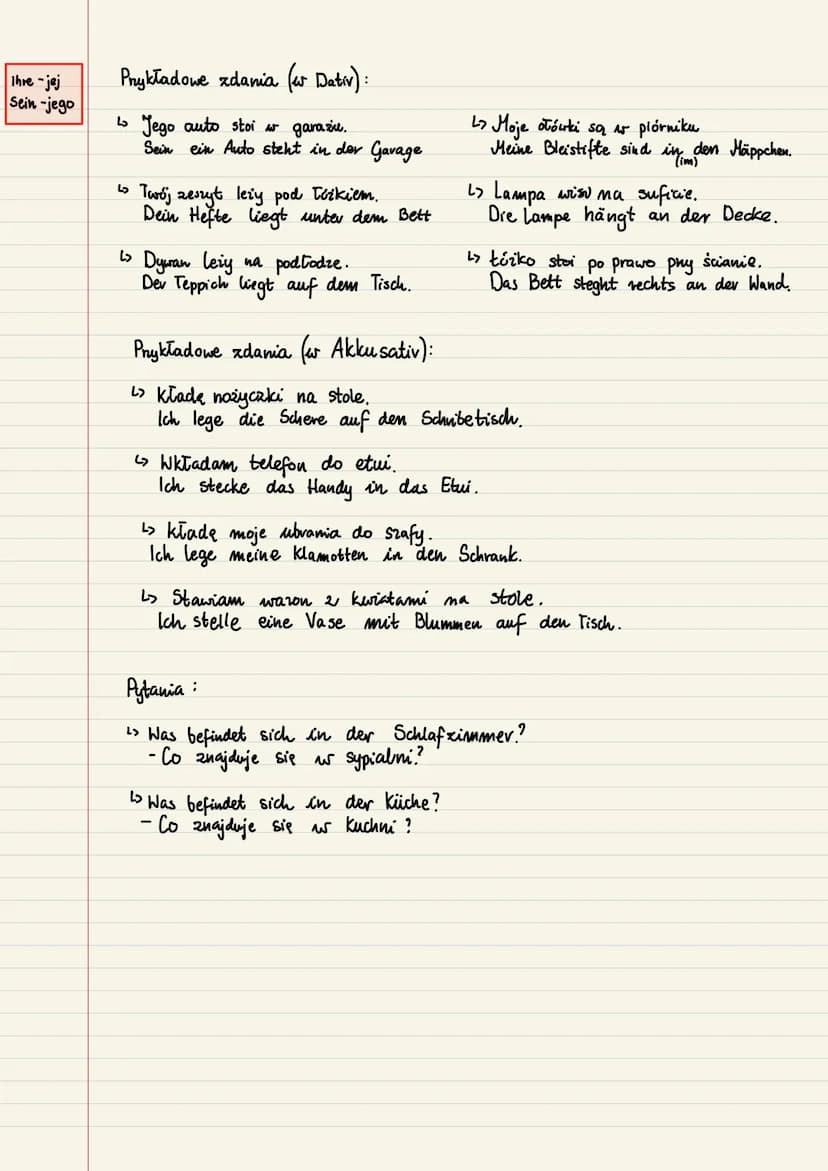 Ihre - jej
Sein - jego
Przykładowe zdania (w Dativ):
↳ Jego auto stoi w garażu.
Sein ein Auto steht in der Garage
↳ Twój zeszyt leży pod łóżkiem.
Dein Hefte liegt unter dem Bett
↳ Dywan leży na podłodze.
Der Teppich liegt auf dem Tisch.
↳ Moje ołówki są w piórniku
Meine Bleistifte sind in den Mäppchen.
(im)
↳ Lampa wisi na suficie.
Die Lampe hängt an der Decke.
↳ Łóżko stoi po prawo przy ścianie.
Das Bett steght rechts an der Wand.
Przykładowe zdania (w Akkusativ):
↳ Kładę nożyczki na stole.
Ich lege die Schere auf den Schribetisch.
↳ Wkładam telefon do etui.
Ich stecke das Handy in das Etui.
↳ Kładę moje ubrania do szafy.
Ich lege meine Klamotten in den Schrank.
↳ Stawiam wazon z kwiatami na stole.
Ich stelle eine Vase mit Blummen auf den Tisch.
Pytania:
↳ Was befindet sich in der Schlafzimmer?
- Co znajduje się w sypialni?
↳ Was befindet sich in der Küche?
- Co znajduje się w kuchni?